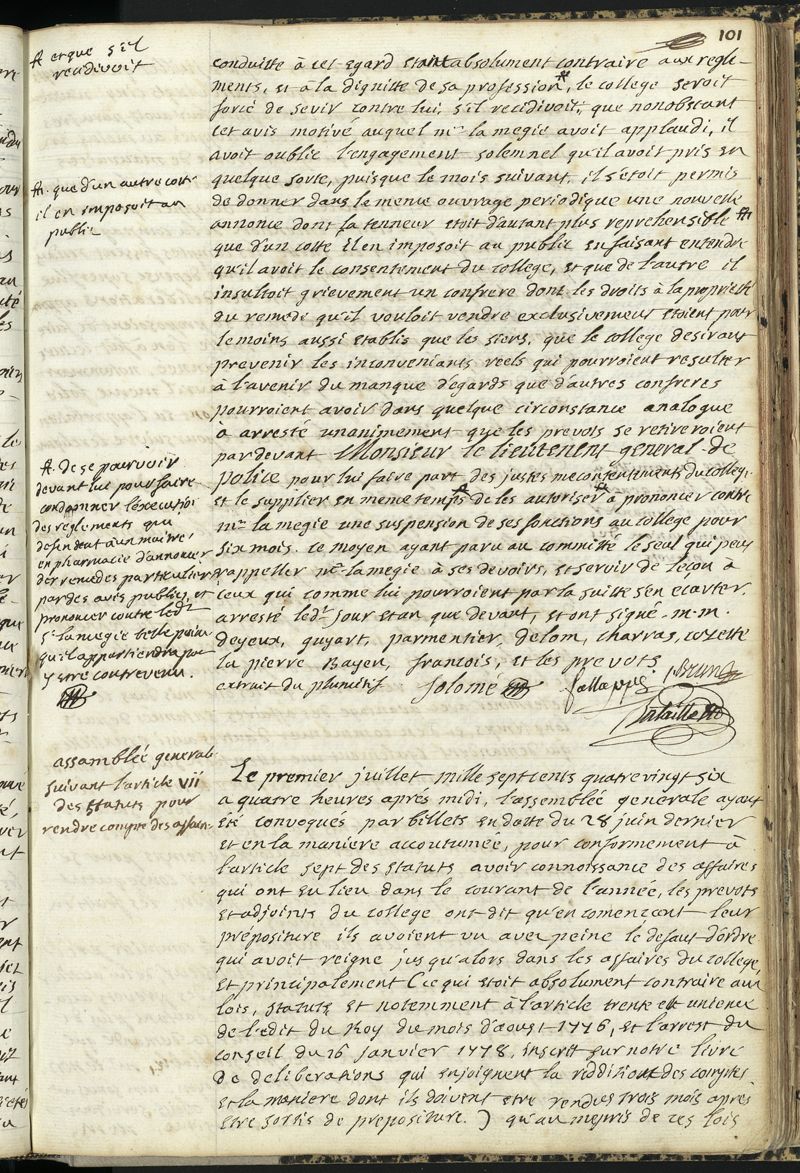 101
conduitte à cet egard etant absolument contraire aux regle-
ments, et à la dignitte de sa profession, le college seroit
forcé de sevir contre lui, s'il recidivoit, que nonobstant
cet avis motivé auquel mr. la megie avoit applaudi, il
avoit oublié l'engagement solemnel qu'il avoit pris en
quelque sorte, puisque le mois suivant, il s'étoit permis
de donner dans le meme ouvrage periodique une nouvelle
annonce dont la tenneur etoit d'autant plus reprehensible
que d'un cotte il en imposoit au public en faisant entendre
qu'il avoit le consentement du college, et que de l'autre il
insultoit grievement un confrere dont les droits à la proprieté
du remede qu'il vouloit vendre exclusivement etoient pour
le moins aussi etablis que les siens, que le college desirant
prevenir les inconveniants reels qui pourroient resulter
à l'avenir du manque d'égards que d'autres confreres
pourroient avoir dans quelque circonstance analogue
à arresté unanimement que les prevots se retireroient
pardevant Monsieur le lieutenent general de
police pour lui faire part des justes mecontentements du college
et le supplier en meme temps de les autoriser à prononcer contre
mr. la megie une suspension de ses fonctions au college pour
six mois. ce moyen ayant paru au committé le seul qui peut
rappeller mr. la megie à ses devoirs, et servir de leçon à
ceux qui comme lui pourroient par la suitte s'en ecarter.
arresté ledt. jour et an que devant, et ont signé. m.m.
deyeux, guyart, parmentier, delom, charras, cozette
la pierre Bayen, francois, et les prevots
extrait du plumitif Solomé Brun
Bataille
A et que s'il
recidivoit
que d'un autre cotte
il en imposoit au
public
A. de se pourvoir
devant lui pour faire
condamner l'execution
des reglements qui
defendent à un maitre
en pharmacie d'annoncer
des remedes particuliers
par des avis publics, et
prononcer contre ledt.
Sr. la megie telle peine
qu'il appartiendra pour
y avoir contrevenu.
assamblée general
suivant l'article VII
des statuts pour
rendre compte des affaires
Le premier juillet mille septcents quatrevingt six
a quatre heures aprés midi, l'assemblée generale ayant
été convoquée par billets en datte du 28 juin dernier
et en la maniere accoutumée, pour conformement à
l'article sept des statuts avoir connoissance des affaires
qui ont eu lieu dans le courant de l'année, les prevots
et adjoints du college ont dit qu'en comencant leur
prepositure ils avoient vu avec peine le defaut d'ordre
qui avoit reigné jusqu'alors dans les affaires du college,
et principalement (ce qui etoit absolument contraire aux
lois, statuts et notemment à l'article trente et unieme
de l'edit du Roy du mois d'aoust 1776, et l'arrest du
conseil du 16 janvier 1778, inscrit sur notre livre
de deliberations qui enjoignent la reddition des comptes
et la maniere dont ils doivent etre rendus trois mois aprés
etre sortis de prepositure.) qu'au mepris de ces lois